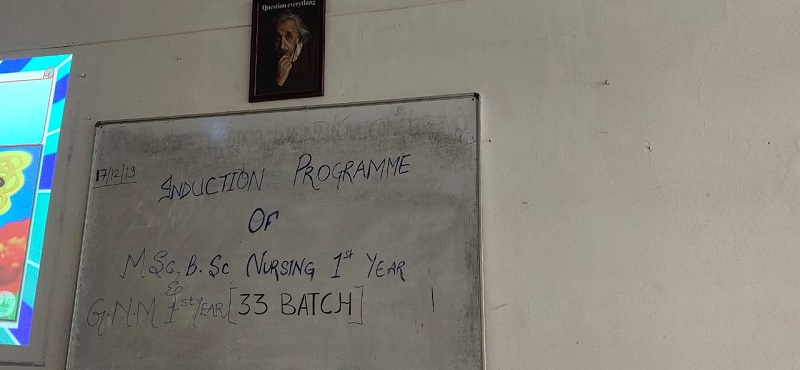 Question everything
17/12/19
INDUCTION PROGRAMME
OF
M.Sc, B.Sc NURSING 1st YEAR
&
G.N.M 1st YEAR [33 BATCH]